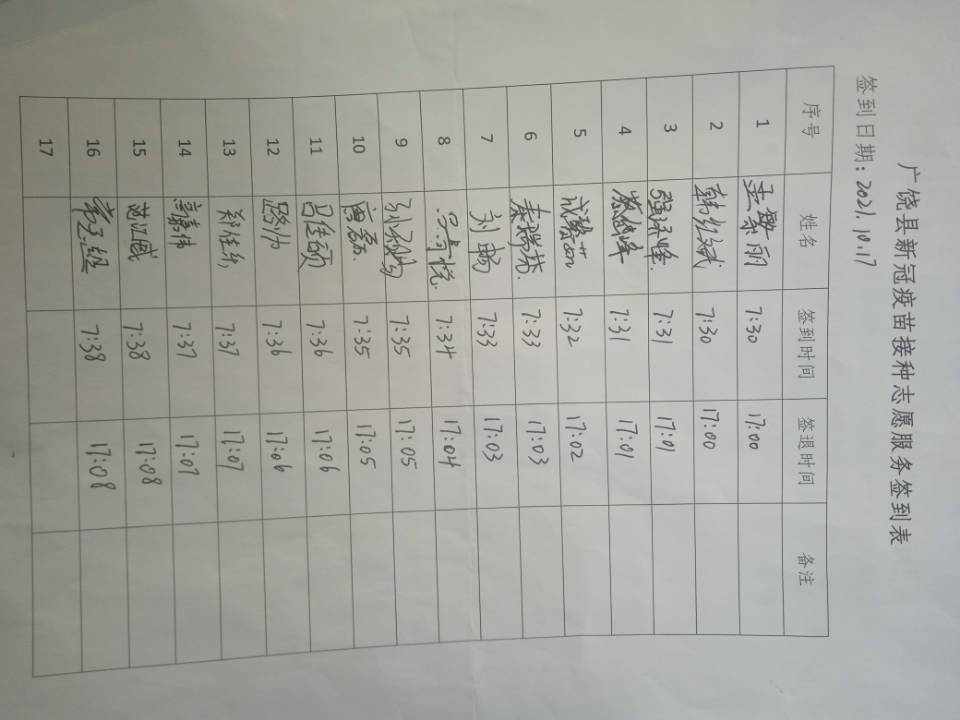 广饶县新冠疫苗接种志愿服务签到表
签到日期：2021.10.17
序号 姓名 签到时间 签退时间 备注
1 7:30 17:00
2 7:30 17:00
3 7:31 17:01
4 7:31 17:01
5 7:32 17:02
6 秦瑞 7:33 17:03
7 刘畅 7:33 17:03
8 7:34 17:04
9 7:35 17:05
10 7:35 17:05
11 7:36 17:06
12 7:36 17:06
13 郑佳 7:37 17:07
14 7:37 17:07
15 7:38 17:08
16 7:38 17:08
17